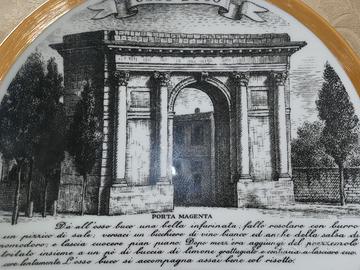 PORTA MAGENTA
Dà all'osso buco una bella infarinata, fallo rosolare con burro
un pizzico di sale, versaci un bicchiere di vino bianco ed anche della salsa di
pomodoro; e lascia cuocere pian piano. Dopo mezz'ora aggiungi del prezzemolo
tritato insieme a un pò di buccia di limone grattugiata e continua a lasciare cuo
cere lentamente. L'osso buco si accompagna assai bene col risotto;